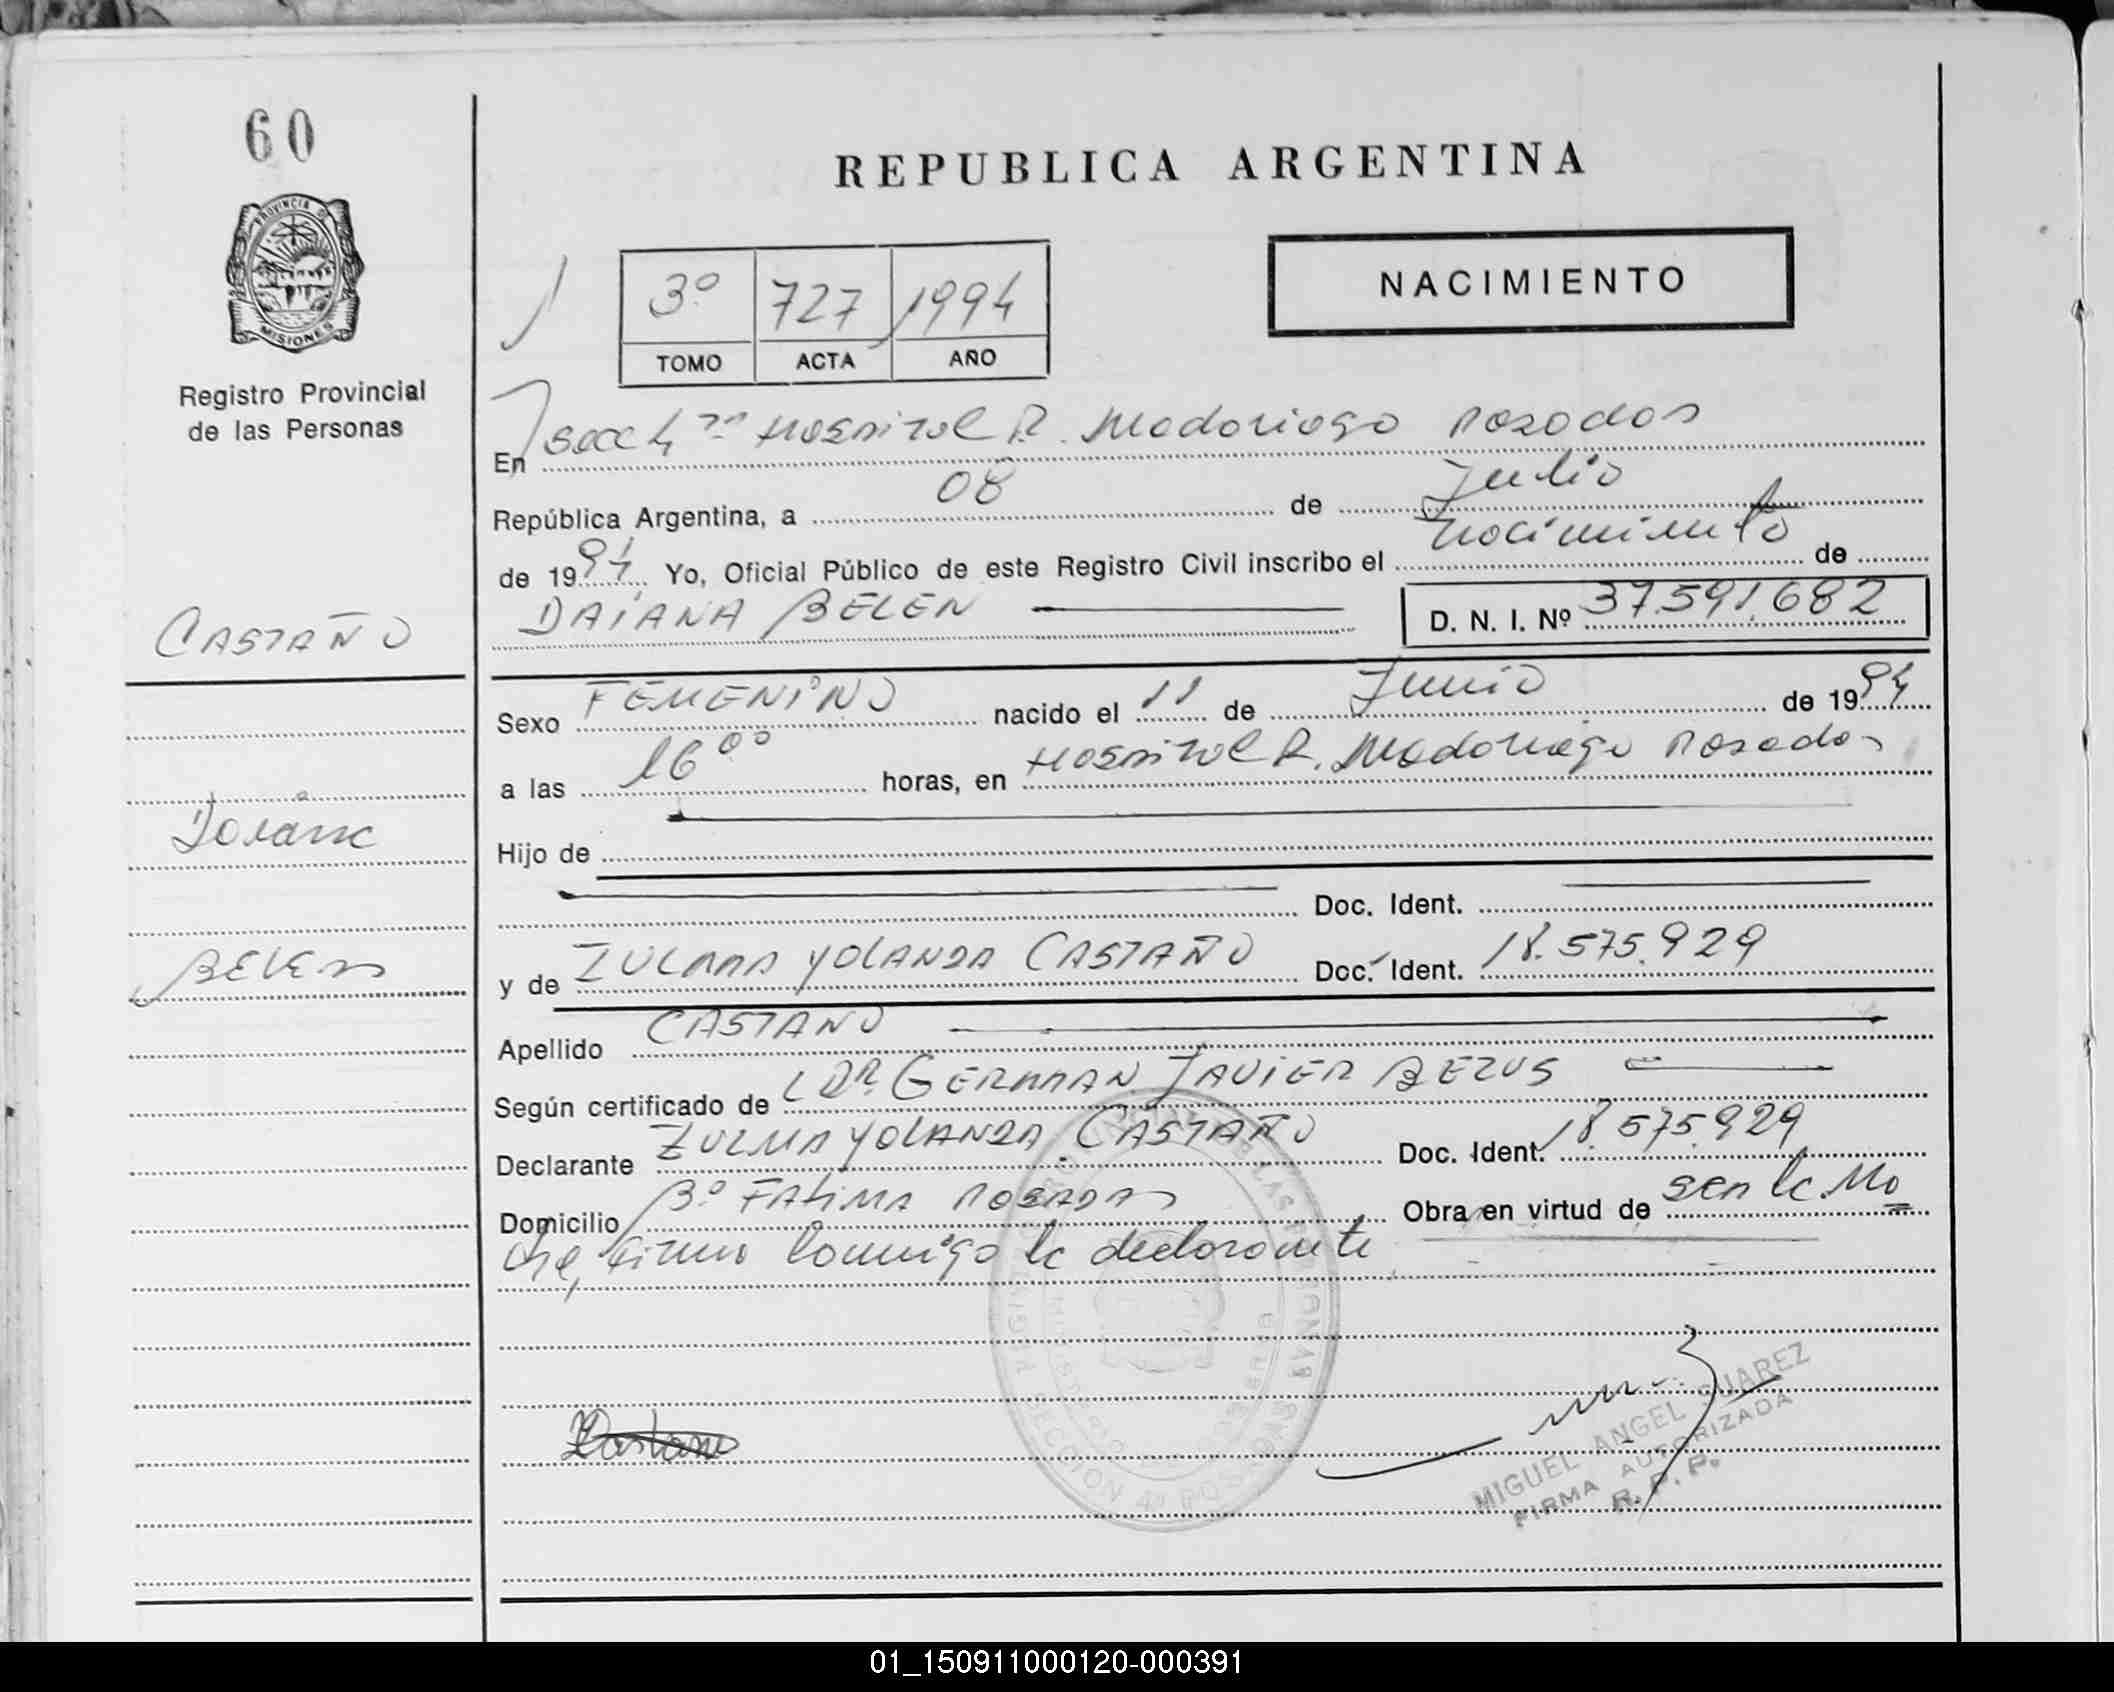 60
REPUBLICA ARGENTINA
PROVINCIA DE
MISIONES
Registro Provincial
de las Personas
3º 727 1994
TOMO ACTA AÑO
NACIMIENTO
En Secc 4ta Hospital R. Madariaga Posadas
República Argentina, a 08 de Julio
de 1994 Yo, Oficial Público de este Registro Civil inscribo el nacimiento de
DAIANA BELEN D. N. I. Nº 37.591.682
CASTAÑO
Daiana
Belen
Sexo FEMENINO nacido el 11 de Junio de 1994
a las 16°° horas, en Hospital R. Madariaga Posadas
Hijo de
Doc. Ident.
y de ZULMA YOLANDA CASTAÑO Doc. Ident. 18.575.929
Apellido CASTAÑO
Según certificado de DR. GERMAN JAVIER BEZUS
Declarante ZULMA YOLANDA CASTAÑO Doc. Ident. 18.575.929
Domicilio Bº FATIMA POSADAS Obra en virtud de ser la Ma
dre, firma conmigo la declarante
SECCION 4ª POSADAS
MIGUEL ANGEL SUAREZ
FIRMA AUTORIZADA
R. P. P.
01_150911000120-000391